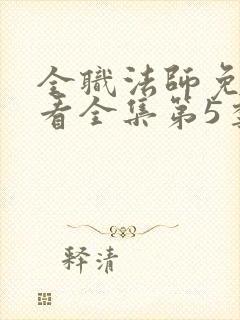 全職法師免
看全集第5季
释清